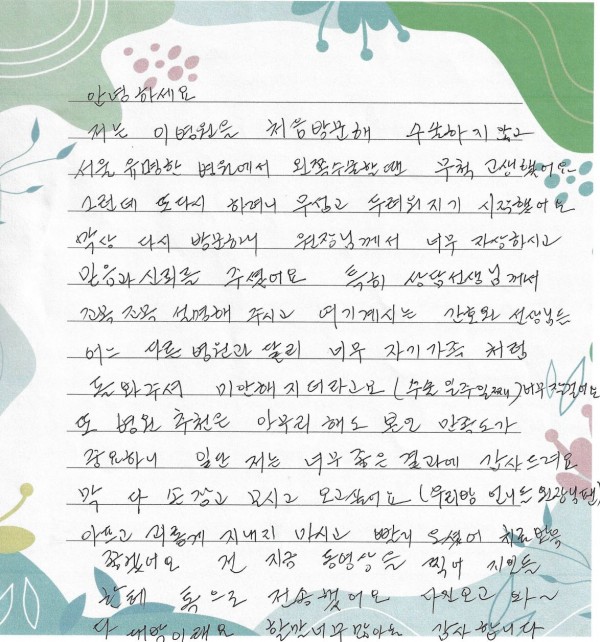 안녕하세요
저는 이병원을 처음방문해 수술하지 않고
서울 유명한 병원에서 왼쪽수술할때 무척 고생했어요
그런데 또다시 하려니 무섭고 두려워지기 시작했어요
막상 다시 방문하니 원장님께서 너무 자상하시고
믿음과 신뢰를 주셨어요 특히 상담선생님께서
조목 조목 설명해 주시고 여기계시는 간호와 선생님들
어느 다른 병원과 달리 너무 자기가족 처럼
돌봐주셔 미안해지더라고요 (수술 일주일째) 너무
또 병원 추천은 아무리 해도 본인 만족도가
중요하니 일단 저는 너무 좋은 결과에 감사드려요
막 다 손잡고 모시고 오고싶어요 (우리맘 언니는 원장님팬)
아프고 괴롭게 지내지 마시고 빨리 오셨어 치료받음
좋겠어요 전 지금 동영상을 찍어 지인들
한테 톡으로 전송했어요 사진으고 와~
다 대박이래요 할말너무많아요 감사합니다